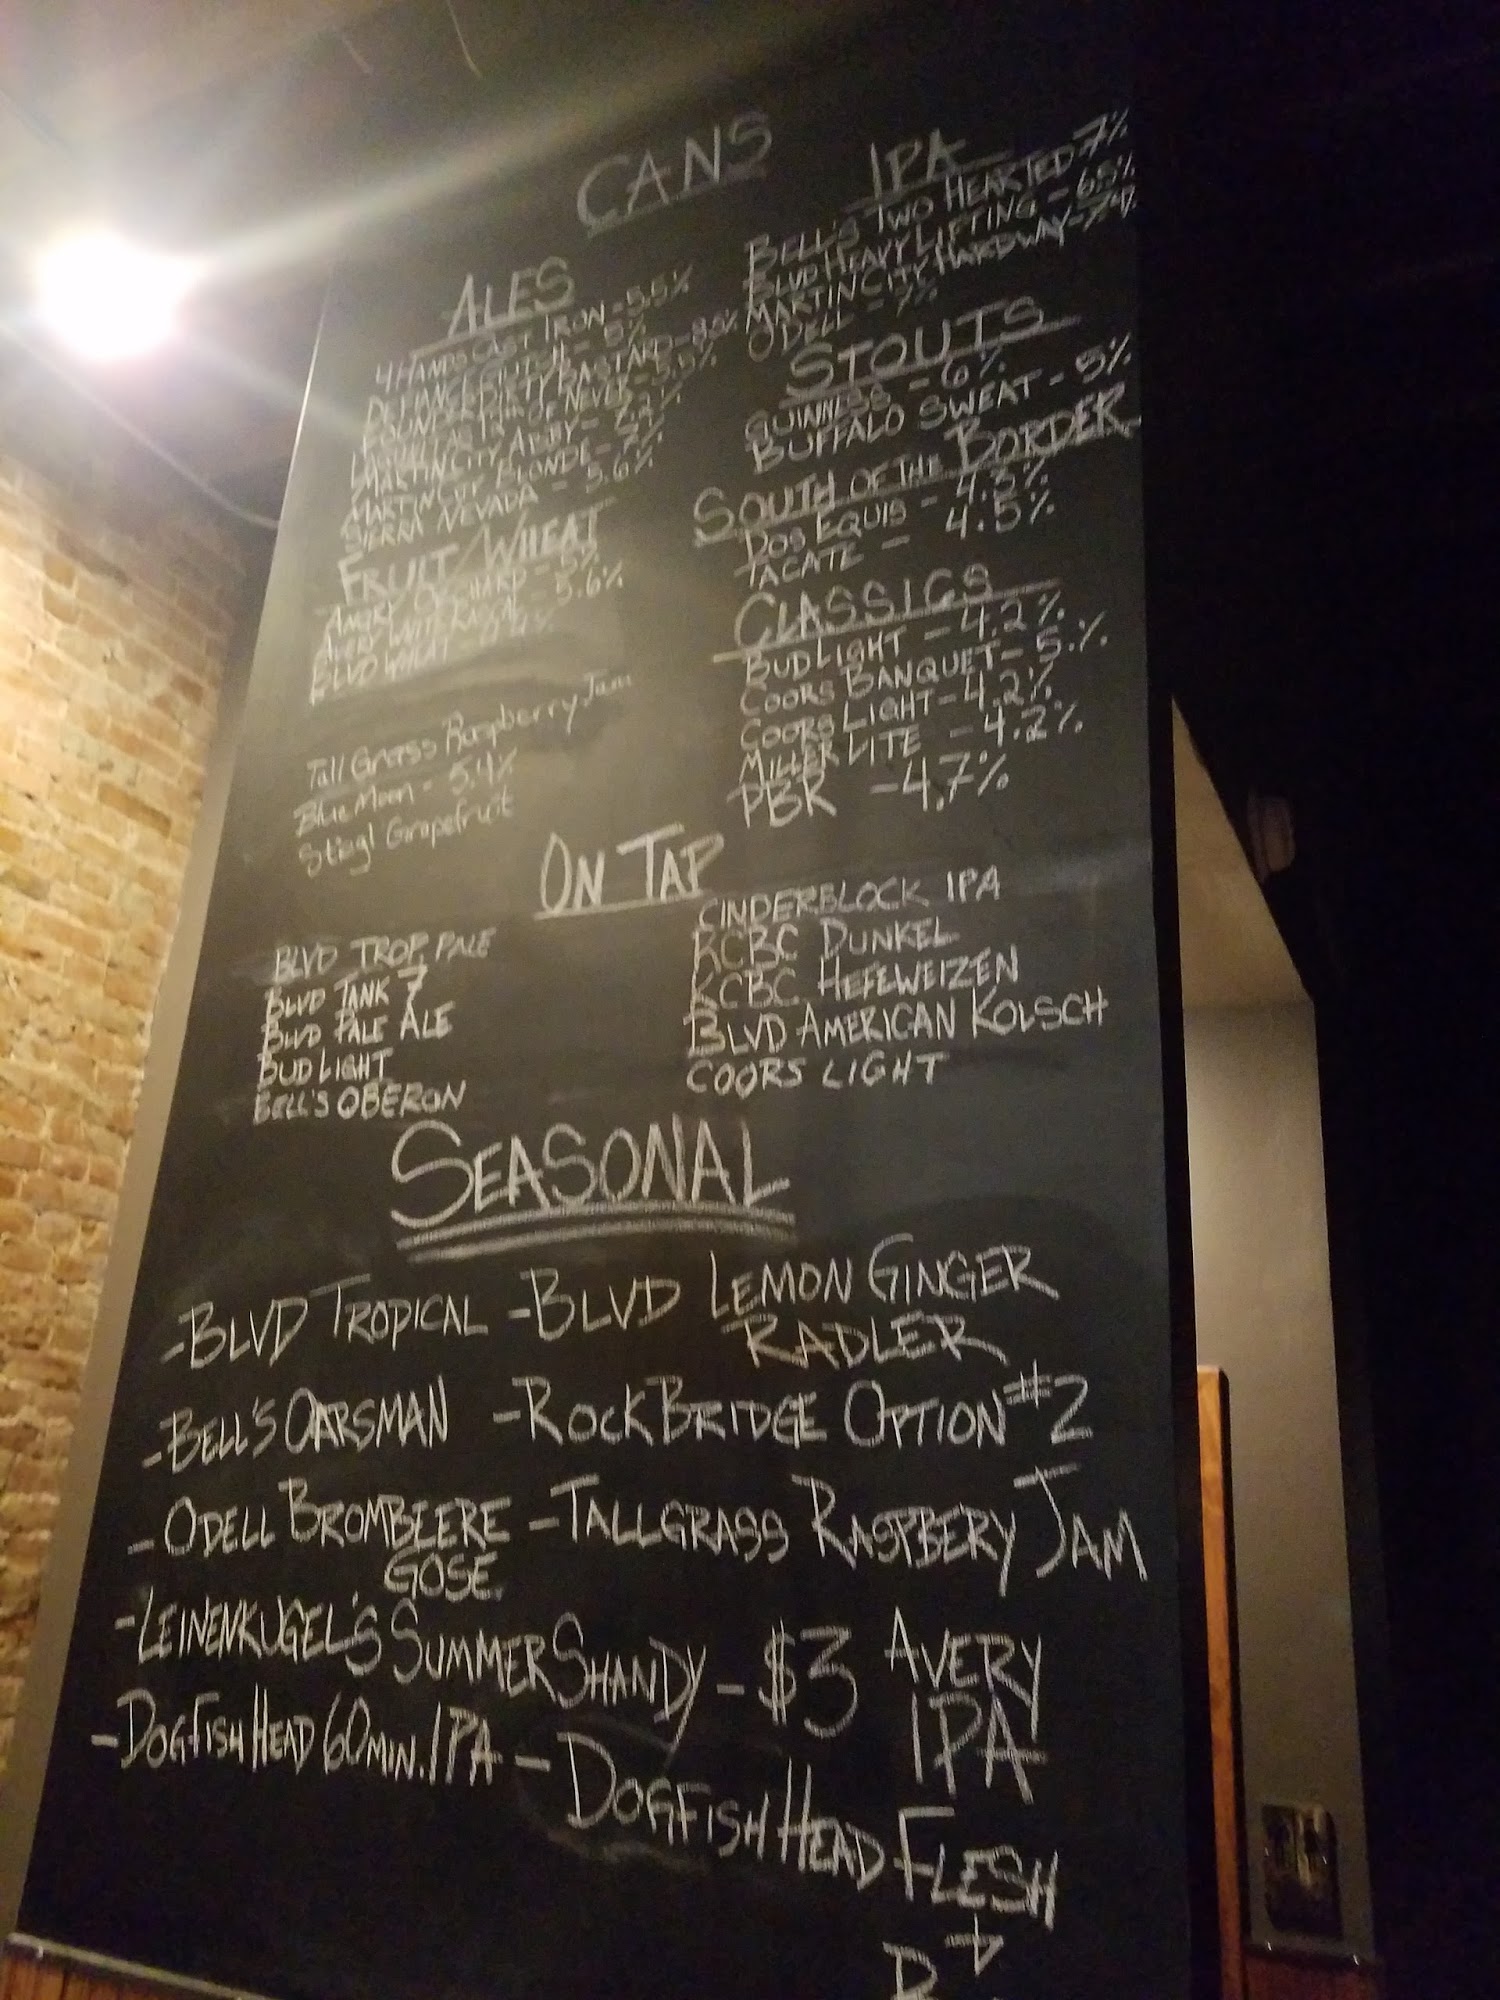 CANS
ALES
4 HANDS CAST IRON - 5.5%
DEFIANCE - 5%
FOUNDERS DIRTY BASTARD - 8.5%
OF NEVER - 5.5%
MARTIN CITY ABBY -
MARTIN CITY BLONDE -
SIERRA NEVADA - 5.6%
FRUIT/WHEAT
ANGRY ORCHARD - 5%
- 5.6%
BLVD WHEAT -
Tall Grass Raspberry Jam
Blue Moon - 5.4%
Stiegl Grapefruit
IPA
BELL'S TWO HEARTED 7%
BLVD HEAVY LIFTING - 6.5%
MARTIN CITY HARDWAY -
ODELL - 7%
STOUTS
GUINNESS - 6%
BUFFALO SWEAT - 5%
SOUTH OF THE BORDER
DOS EQUIS - 4.3%
TACATE - 4.5%
CLASSICS
BUD LIGHT - 4.2%
COORS BANQUET - 5%
COORS LIGHT - 4.2%
MILLER LITE - 4.2%
PBR - 4.7%
ON TAP
BLVD TROP. PALE
BLVD TANK 7
BLVD PALE ALE
BUD LIGHT
BELL'S OBERON
CINDERBLOCK IPA
KCBC DUNKEL
KCBC HEFEWEIZEN
BLVD AMERICAN KOLSCH
COORS LIGHT
SEASONAL
- BLVD TROPICAL - BLVD LEMON GINGER
RADLER
- BELL'S OARSMAN - ROCK BRIDGE OPTION #2
- ODELL BROMBEERE - TALLGRASS RASPBERY JAM
GOSE
- LEINENKUGEL'S SUMMER SHANDY - $3 AVERY
IPA
- DOGFISH HEAD 60 MIN. IPA - DOGFISH HEAD FLESH